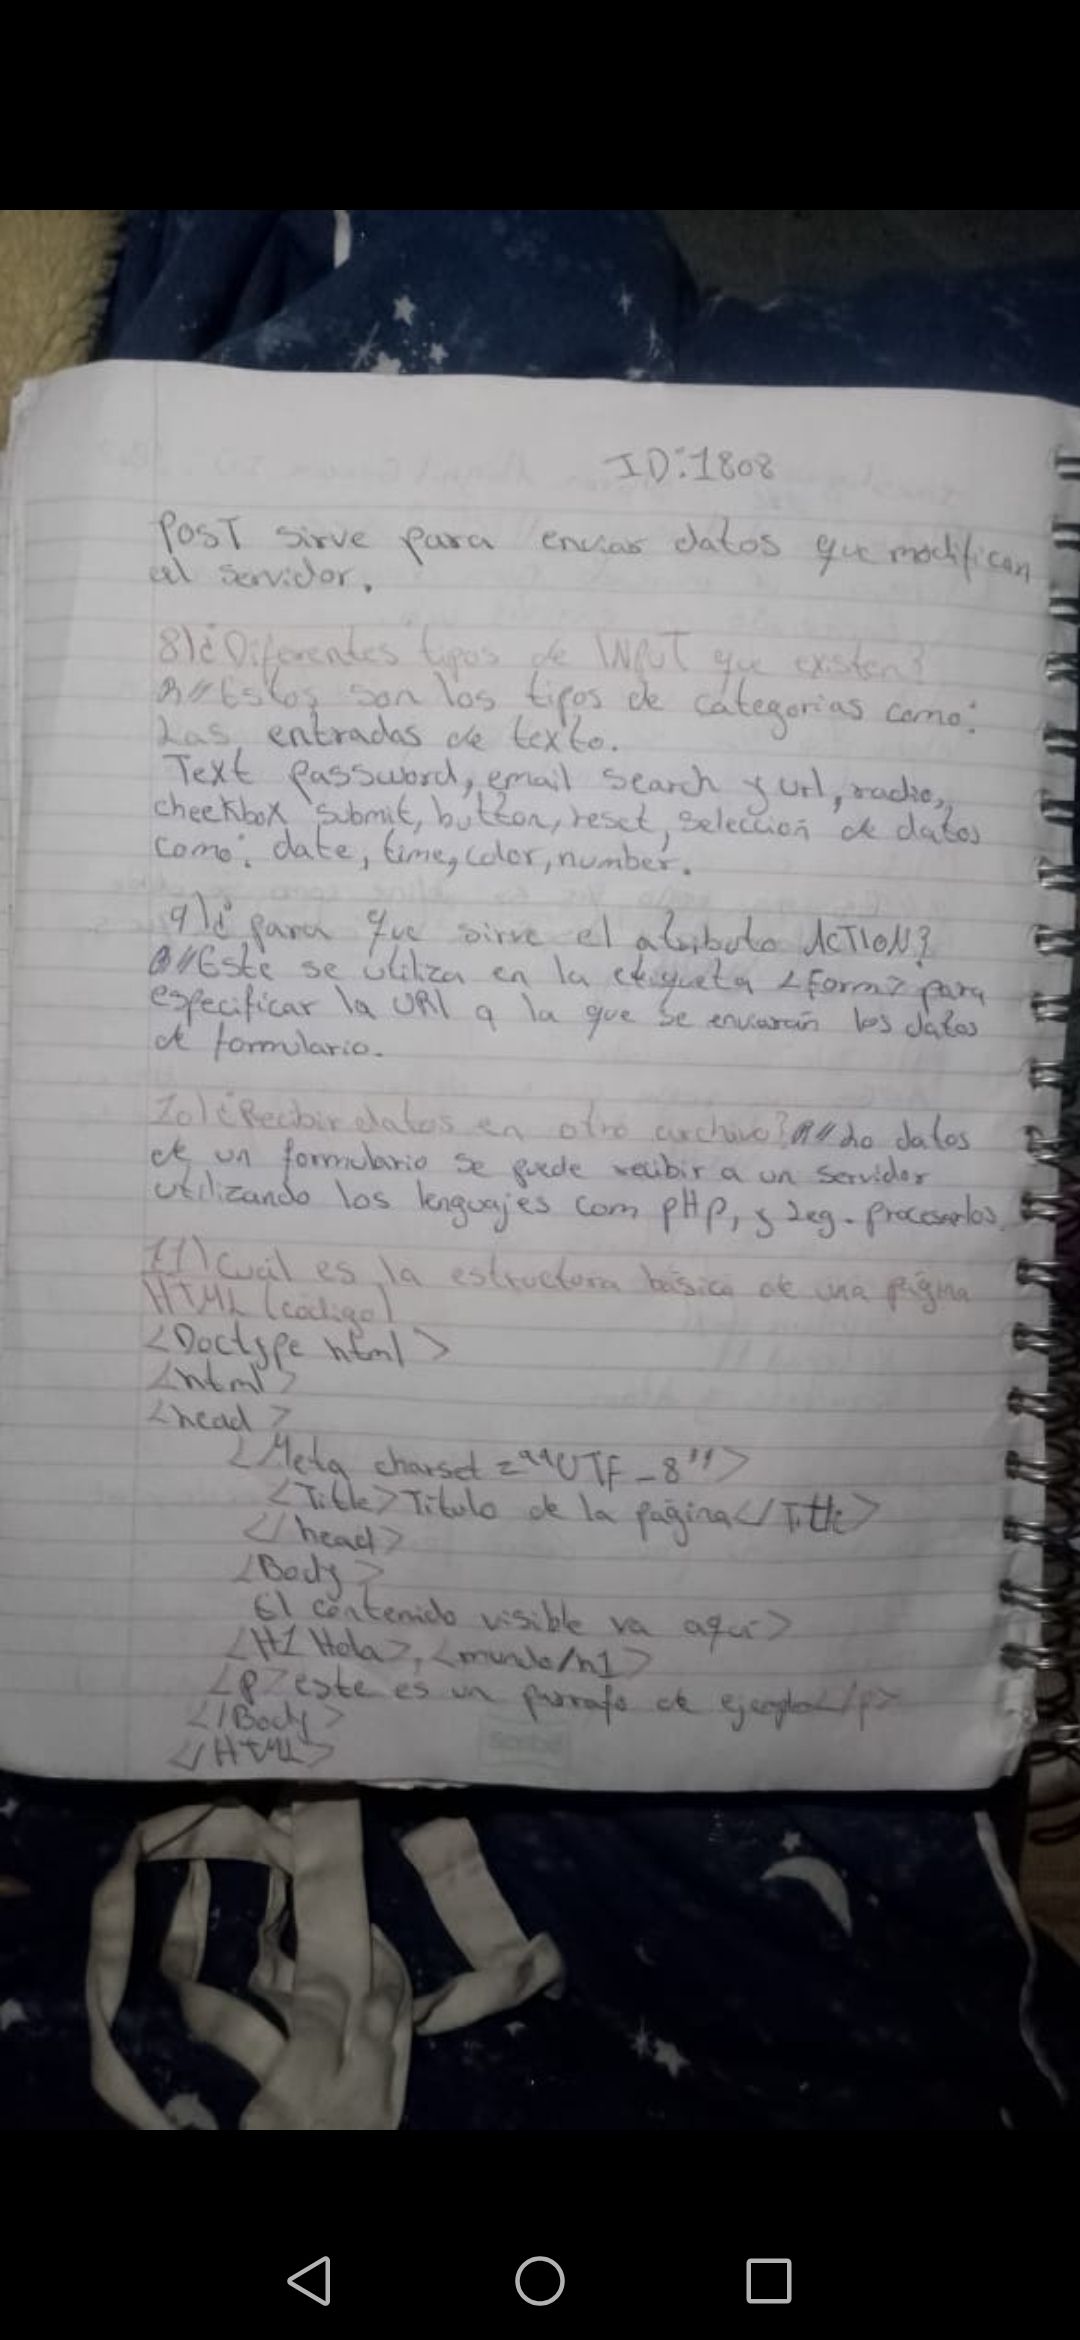 ID:1808
PosT sirve para enviar datos que modifican
el servidor.
8)¿Diferentes tipos de INPUT que existen?
R//Estos son los tipos de categorias como:
Las entradas de texto.
Text password, email search y url, radio,
checkbox submit, button, reset, selección de datos
como: date, time, color, number.
9)¿para que sirve el atributo ACTION?
R//Este se utiliza en la etiqueta <Form> para
especificar la URl a la que se enviarán los datos
de formulario.
10)¿Recibir datos en otro archivo? R//Lo datos
de un formulario se puede recibir a un servidor
utilizando los lenguajes com pHp, y procesarlos
11) Cuál es la estructura básica de una página
HTML (código)
<Doctype html>
<html>
<head>
<Meta charset="UTF-8">
<Title>Titulo de la página</Title>
</head>
<Body>
El contenido visible va aquí>
<H1 Hola>, <mundo/h1>
<p>este es un parrafo de ejemplo</p>
</Body>
</HTML>
Scribe